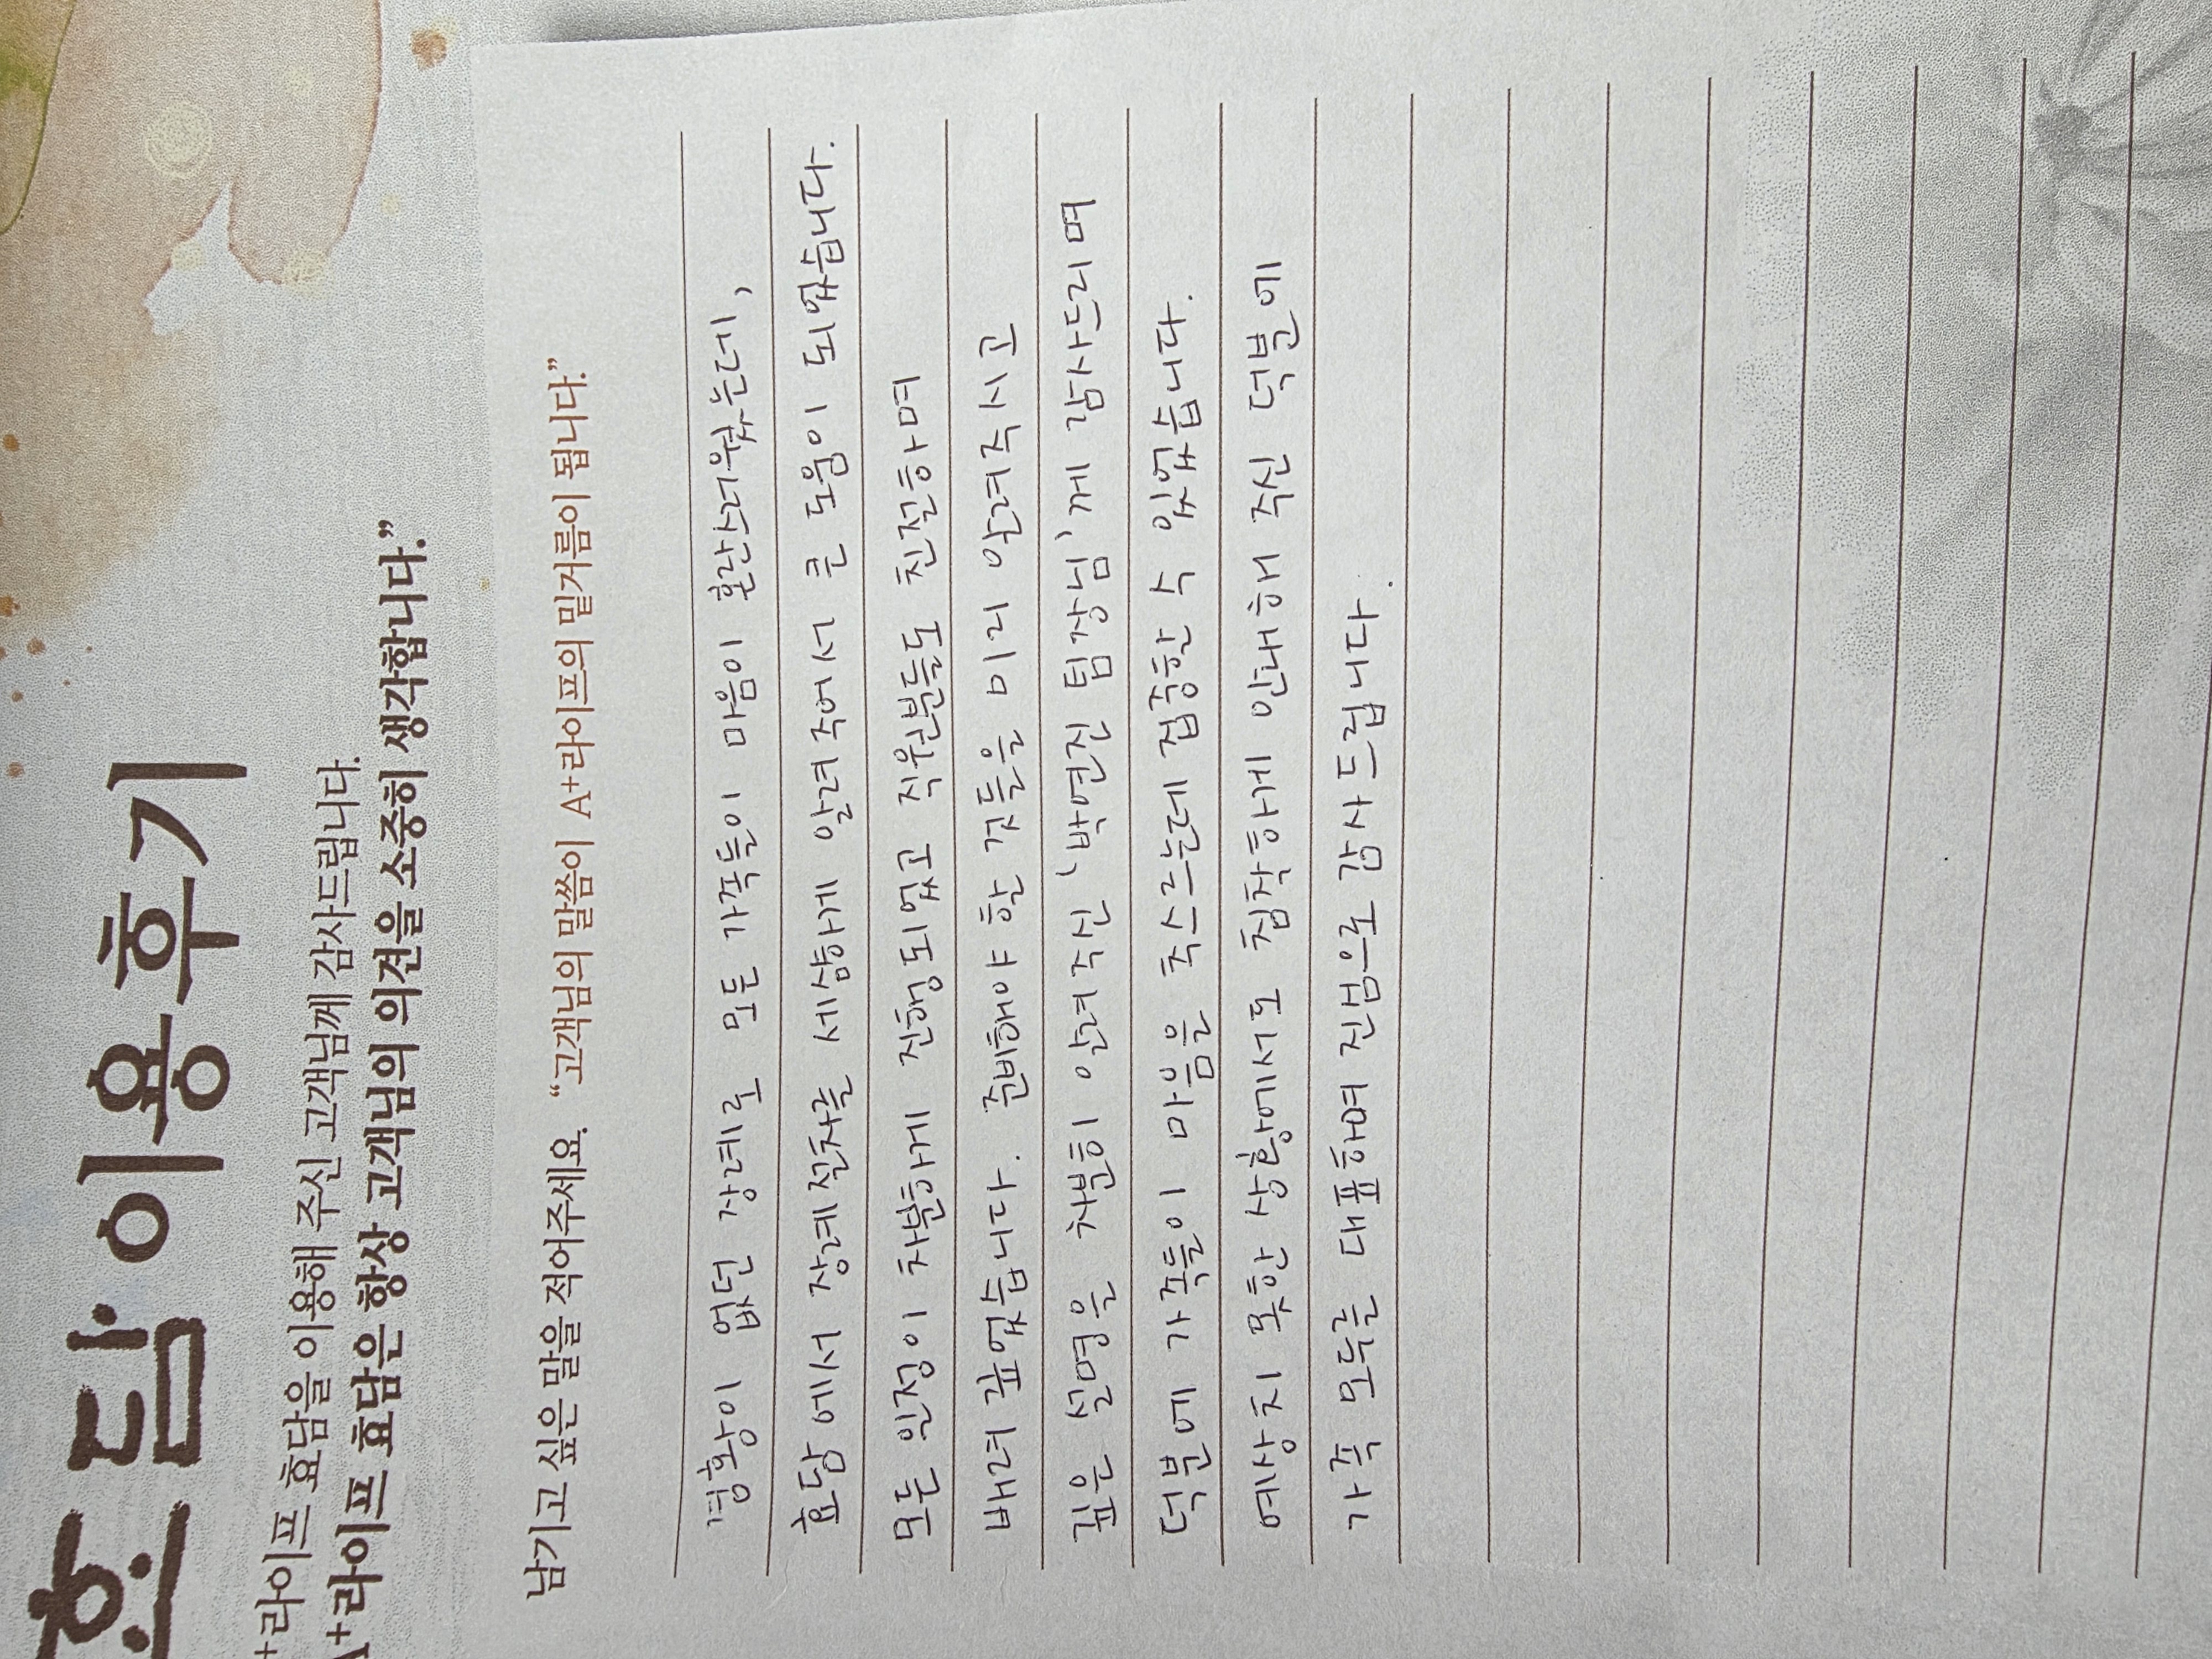 효담 이용후기
A⁺라이프 효담을 이용해 주신 고객님께 감사드립니다.
A⁺라이프 효담은 항상 고객님의 의견을 소중히 생각합니다.”
남기고 싶은 말을 적어주세요. “고객님의 말씀이 A⁺라이프의 밑거름이 됩니다.”
경황이 없던 장례로 모든 가족들이 마음이 혼란스러웠는데,
효담에서 장례절차를 세심하게 알려주어서 큰 도움이 되었습니다.
모든 일정이 차분하게 진행되었고 직원분들도 친절하며
배려 깊었습니다. 준비해야 할 것들을 미리 알려주시고
깊은 설명을 차분히 알려주신 '박연진 팀장님'께 감사드리며
덕분에 가족들이 마음을 추스르는데 집중할 수 있었습니다.
예상치 못한 상황에서도 침착하게 안내해 주신 덕분에
가족 모두를 대표하며 진심으로 감사드립니다.